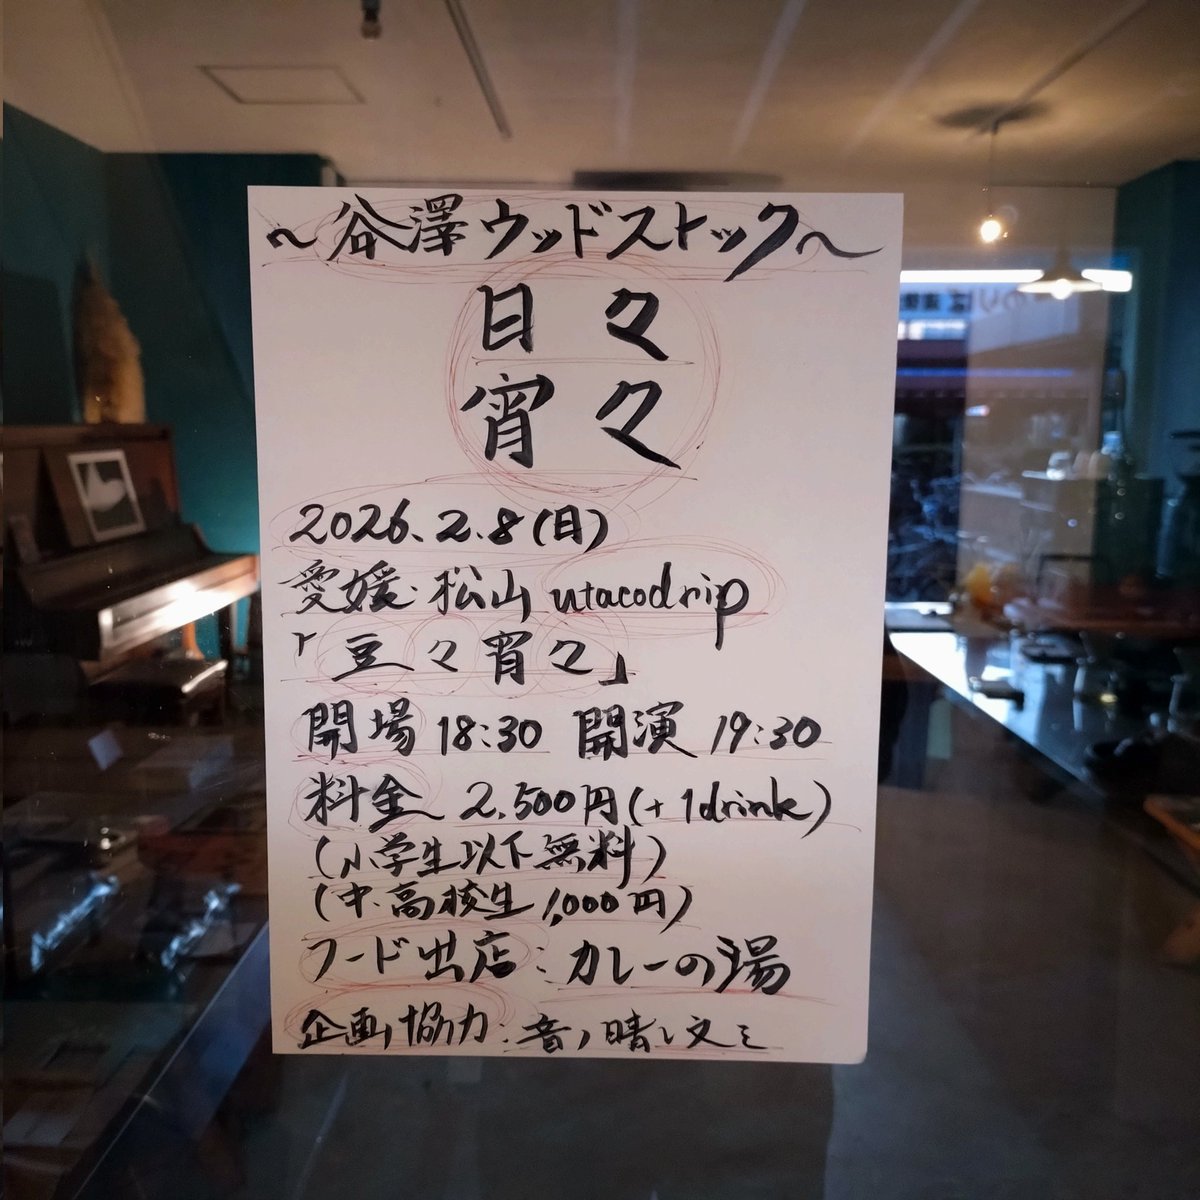 ~谷澤ウッドストック~
日々
宵々
2026.2.8(日)
愛媛・松山 utacodrip
「豆々宵々」
開場 18:30 開演 19:30
料金 2,500円(+1drink)
(小学生以下無料)
(中・高校生 1,000円)
フード出店:カレーの湯
企画協力:音ノ晴レ文ミ